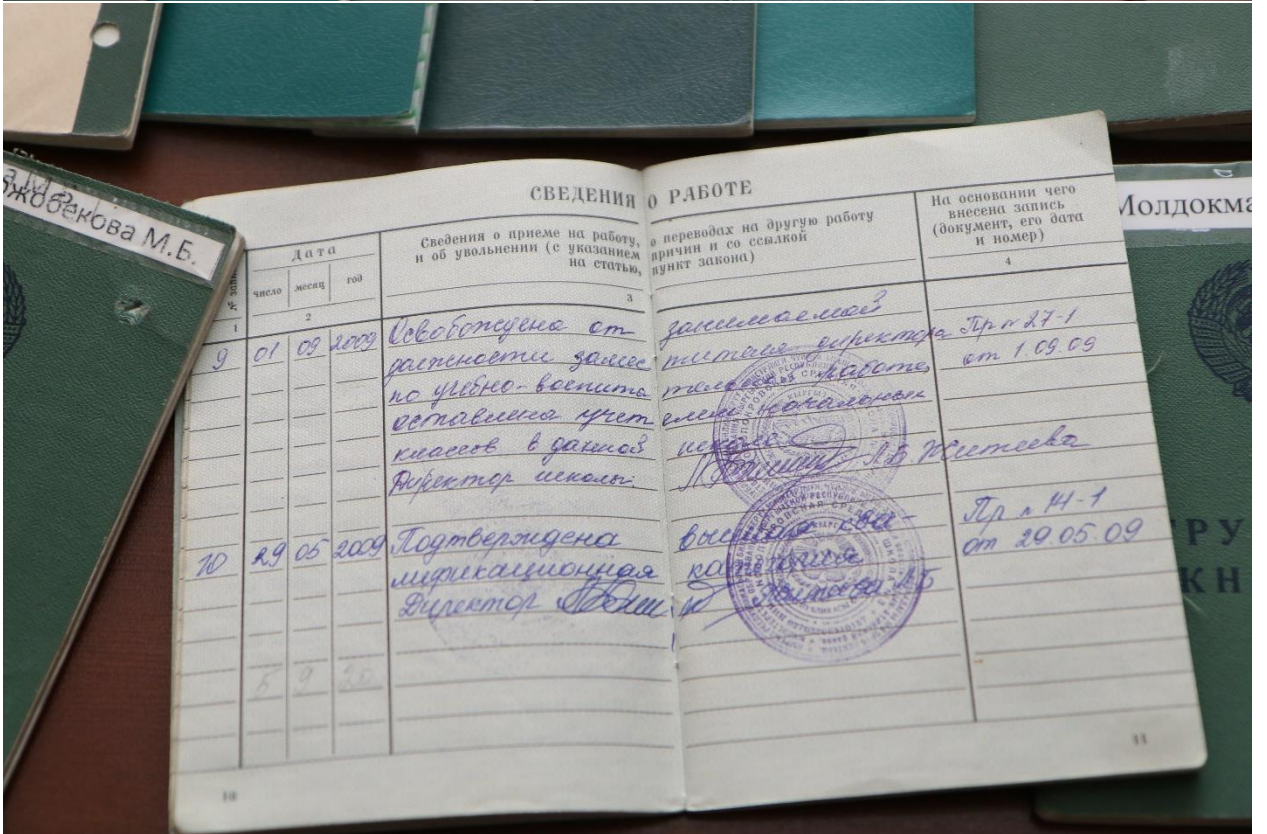 жобекова М.Б.
Молдокма
РУ
КН
СВЕДЕНИЯ О РАБОТЕ
№ запи
Дата
число
месяц
год
Сведения о приеме на работу, о переводах на другую работу
и об увольнении (с указанием причин и со ссылкой
на статью, пункт закона)
На основании чего
внесена запись
(документ, его дата
и номер)
1
2
3
4
9 01 09 2009 Освобождена от занимаемой Пр № 27-1
должности заместителя директора от 1.09.09
по учебно-воспитательной работе,
оставлена учителем начальных
классов в данной школе
Директор школы: Л.В. Житеева
10 29 05 2009 Подтверждена высшая ква- Пр № 14-1
лификационная категория от 29.05.09
Директор
5 9 20
10
11